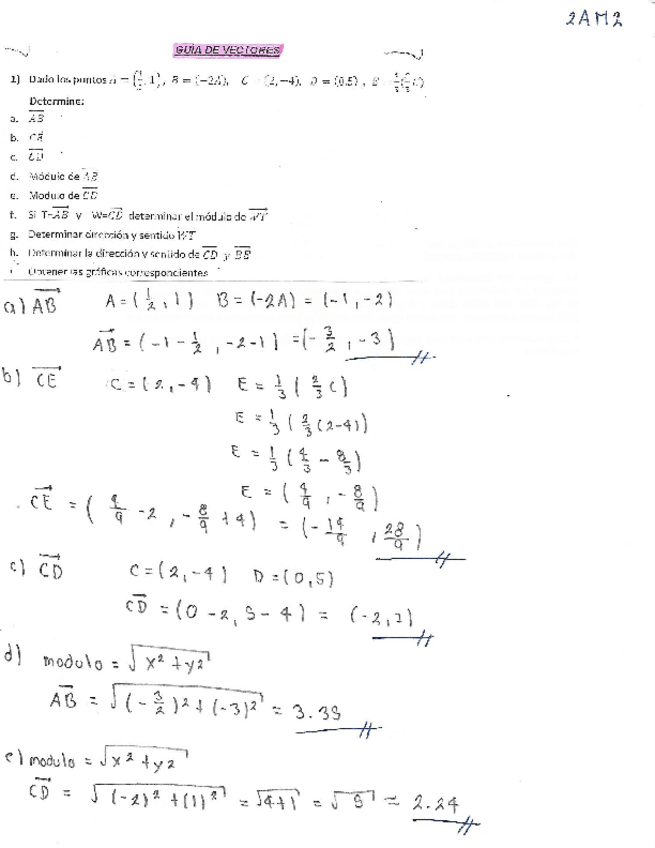 2AM2
GUÍA DE VECTORES
1) Dado los puntos A = (1/2, 1), B = (−2A), C = (2,−4), D = (0,5), E = 1/3(2/3 C)
Determine:
a. AB
b. CE
c. CD
d. Módulo de AB
e. Modulo de CD
f. Si T=AB y W=CD determinar el módulo de WT
g. Determinar dirección y sentido WT
h. Determinar la dirección y sentido de CD y BE
i. Obtener las gráficas correspondientes
a) AB A = (1/2, 1) B = (-2A) = (-1, -2)
AB = (-1 - 1/2, -2-1) = (-3/2, -3)
b) CE C = (2, -4) E = 1/3 (2/3 C)
E = 1/3 (2/3 (2-4))
E = 1/3 (4/3 - 8/3)
E = (4/9, -8/9)
CE = (4/9 - 2, -8/9 + 4) = (-14/9, 28/9)
c) CD C = (2, -4) D = (0, 5)
CD = (0 - 2, 5 - 4) = (-2, 1)
d) modulo = √x² + y²
AB = √(-3/2)² + (-3)² = 3.35
e) modulo = √x² + y²
CD = √(-2)² + (1)² = √4+1 = √5 = 2.24